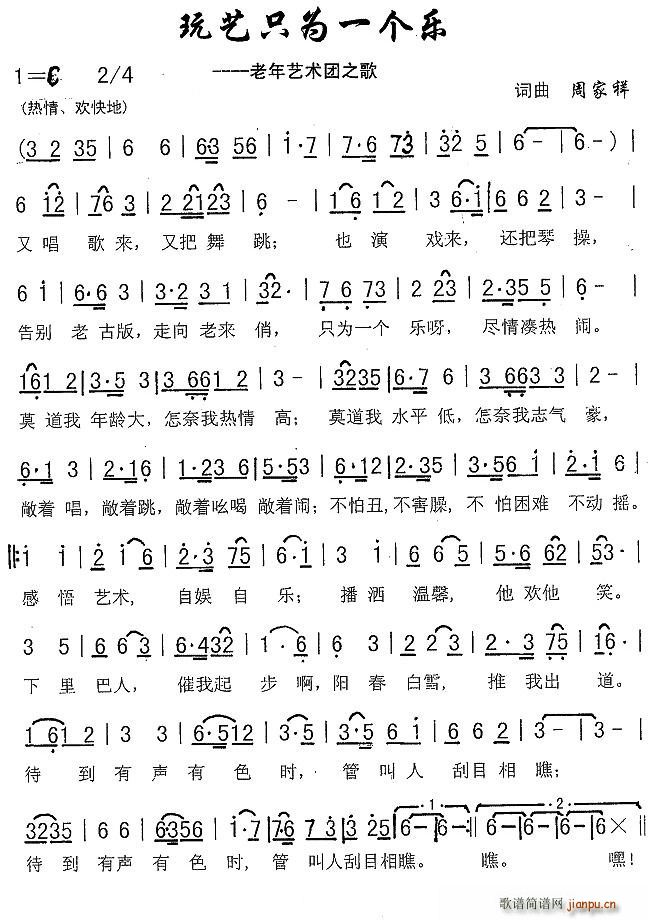 玩艺只为一个乐
1=C 2/4
----老年艺术团之歌
词曲 周家祥
(热情、欢快地)
(3 2 35 | 6 6 | 63 56 | i·7 | 7·6 73 | 32 5 | 6- | 6-) |
6 i2 | 76 3 | 2 2123 | 6- | 16 12 | 3 6·i | 6 6 2 | 3- |
又唱 歌来, 又把舞 跳; 也演 戏来, 还把琴 操,
6 i | 6·6 3 | 3·2 3 1 | 32· | 7 6 73 | 2 23 | 2·35 5 | 6- |
告别 老古版, 走向 老来 俏, 只为一个 乐呀, 尽情凑热 闹。
161 2 | 3·5 3 | 3 661 2 | 3- | 3235 | 6·7 6 | 3 663 3 | 2- |
莫道我 年龄大, 怎奈我热情 高; 莫道我 水平 低, 怎奈我志气 豪,
6·1 3 | 2·16 | 1·23 6 | 5·53 | 6·12 | 2·23 | 3·56 i | 2·i 6 |
敞着 唱, 敞着跳, 敞着吆喝 敞着闹; 不怕丑, 不害臊, 不怕困难 不动 摇。
i i | 2 i 6 | 2·3 75 | 6·i | 3 i | 6 6 5 | 5·6 62 | 53· |
感悟 艺术, 自娱 自乐; 播洒 温馨, 他欢他 笑。
3 5 | 6 6 3 | 6·432 | 1·6 | 6 3 | 2 2 3 | 2·3 75 | 16· |
下里 巴人, 催我起 步啊, 阳春 白雪, 推我出 道。
1 61 2 | 3 3 | 6·512 | 3·5 | 3·5 6 i | 6 6 2 | 3- | 3- |
待到有声有色时, 管叫人刮目相瞧;
3235 | 6 6 | 6356 | i·2 | 76 7 3 | 3 25 | 6- | 6- :| 6- | 6- | 6- | 6 × ‖
待到有声有色时, 管叫人刮目相瞧。 瞧。 嘿!
歌谱简谱网
jianpu.cn